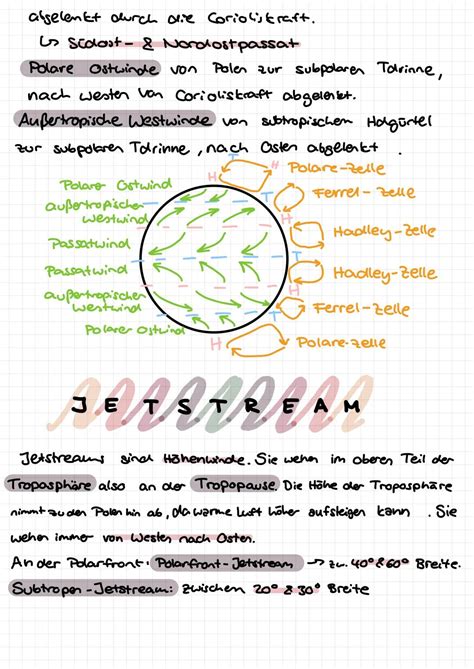 abgelenkt durch die Corioliskraft.
↳ Südost- & Nordostpassat
Polare Ostwinde von Polen zur subpolaren Tdrinne,
nach Westen von Corioliskraft abgelenkt.
Außertropische Westwinde von subtropischem Hdgürtel
zur subpolaren Tdrinne, nach Osten abgelenkt.
T H Polare-Zelle
H
Polare Ostwind T Ferrel-Zelle
außertropischer
Westwind H
Passatwind Hadley-Zelle
T
Passatwind Hadley-Zelle
H
außertropischer
Westwind T Ferrel-Zelle
Polarer Ostwind
H Polare-Zelle
JETSTREAM
Jetstreams sind Höhenwinde. Sie wehen im oberen Teil der
Troposphäre also an der Tropopause. Die Höhe der Troposphäre
nimmt zu den Polen hin ab, da warme Luft höher aufsteigen kann. Sie
wehen immer von Westen nach Osten.
An der Polarfront: Polarfront-Jetstream → zw. 40° & 60° Breite.
Subtropen-Jetstream: zwischen 20° & 30° Breite